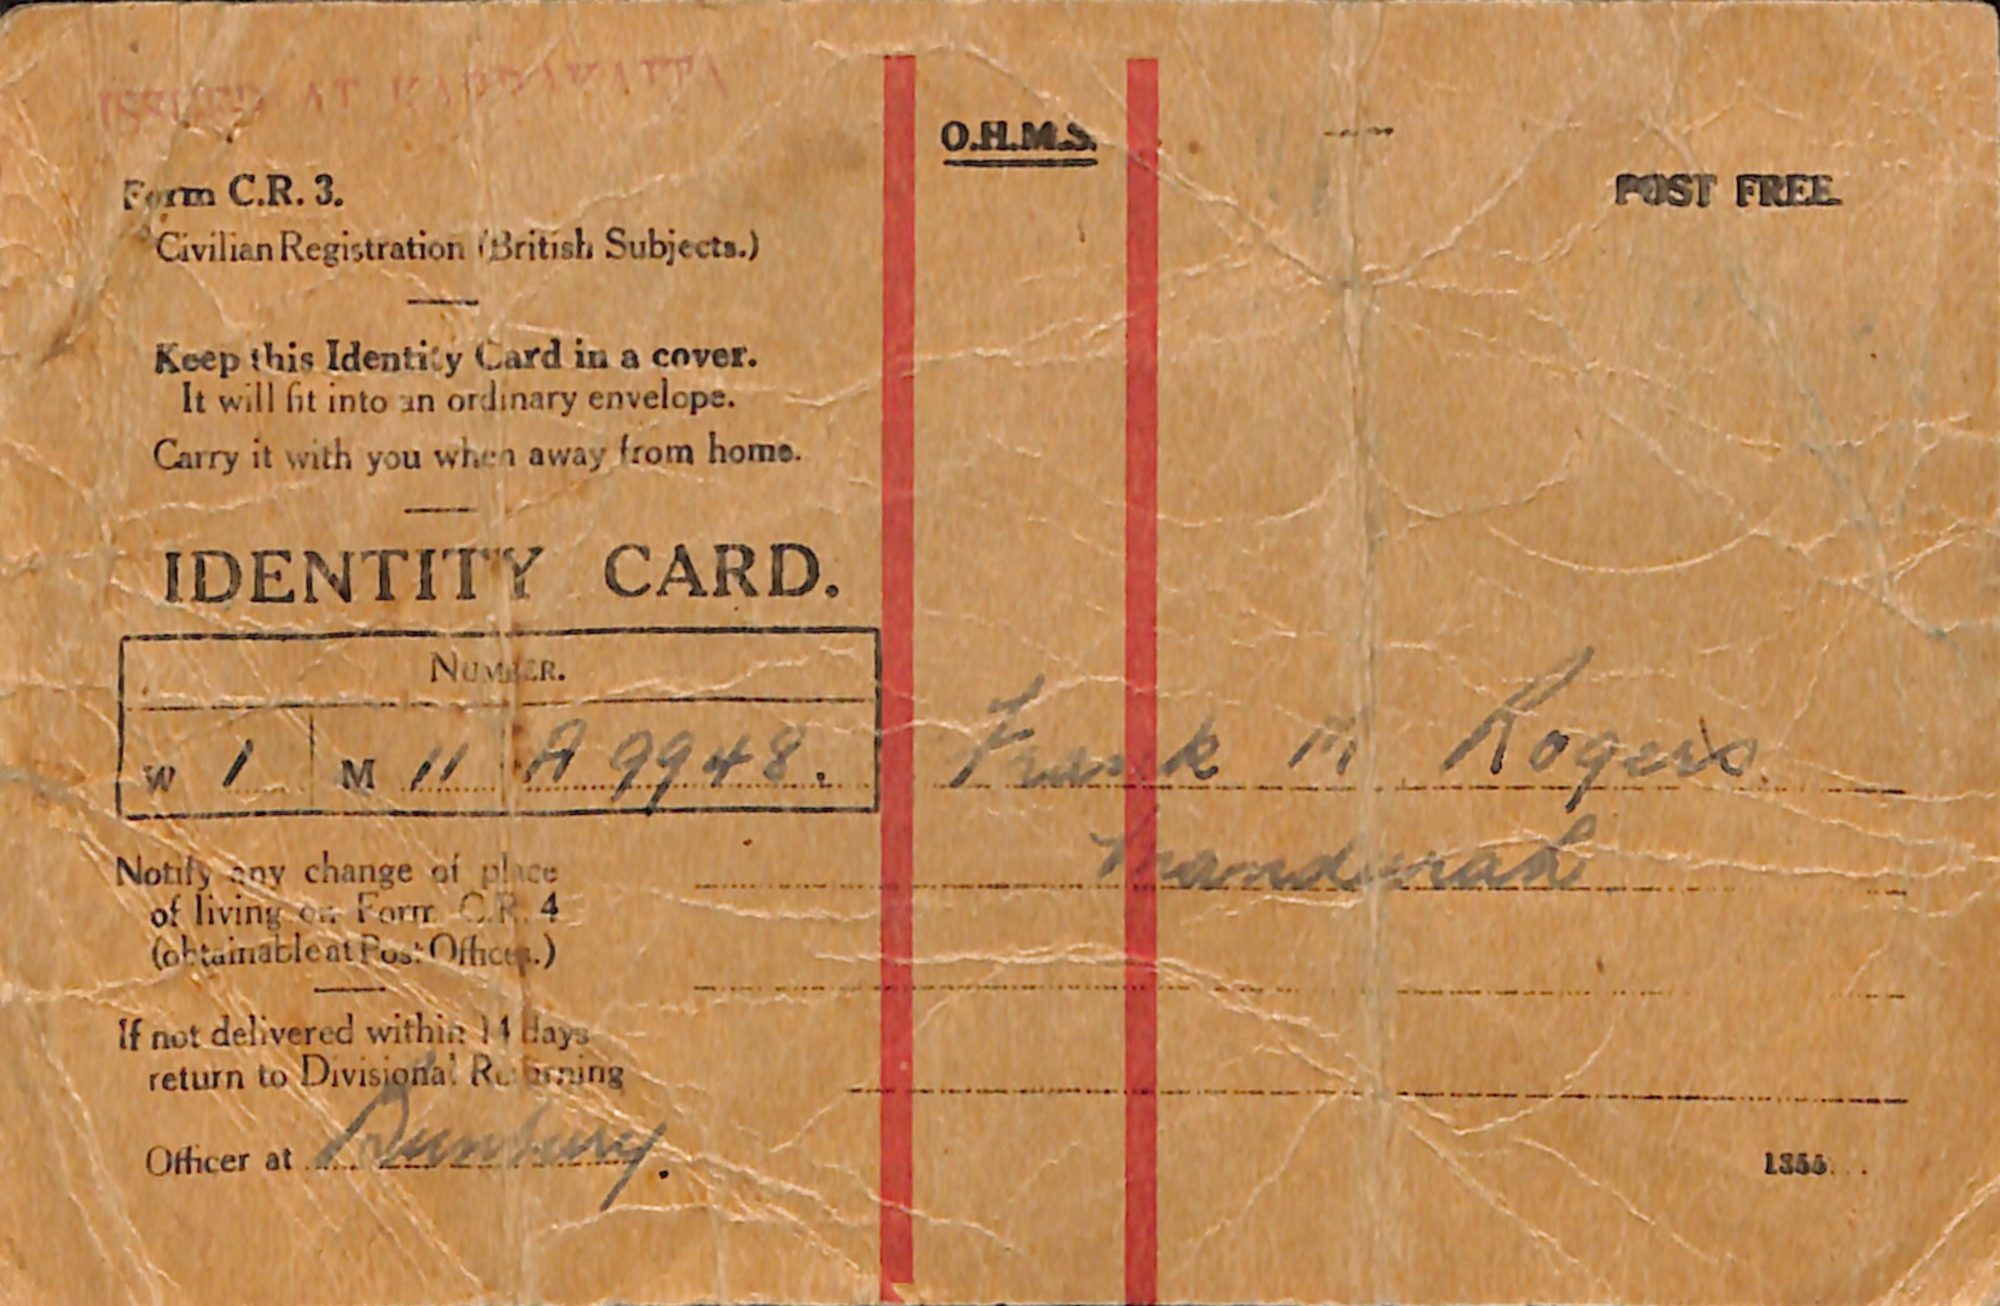 ISSUED AT KARRAKATTA
O.H.M.S.
POST FREE
Form C.R. 3.
Civilian Registration (British Subjects.)
Keep this Identity Card in a cover.
It will fit into an ordinary envelope.
Carry it with you when away from home.
IDENTITY CARD.
NUMBER.
W 1 M 11 A 9948.
Frank M Rogers
Mandurah
Notify any change of place
of living on Form C.R. 4
(obtainable at Post Offices.)
If not delivered within 14 days
return to Divisional Returning
Officer at Bunbury.
1355